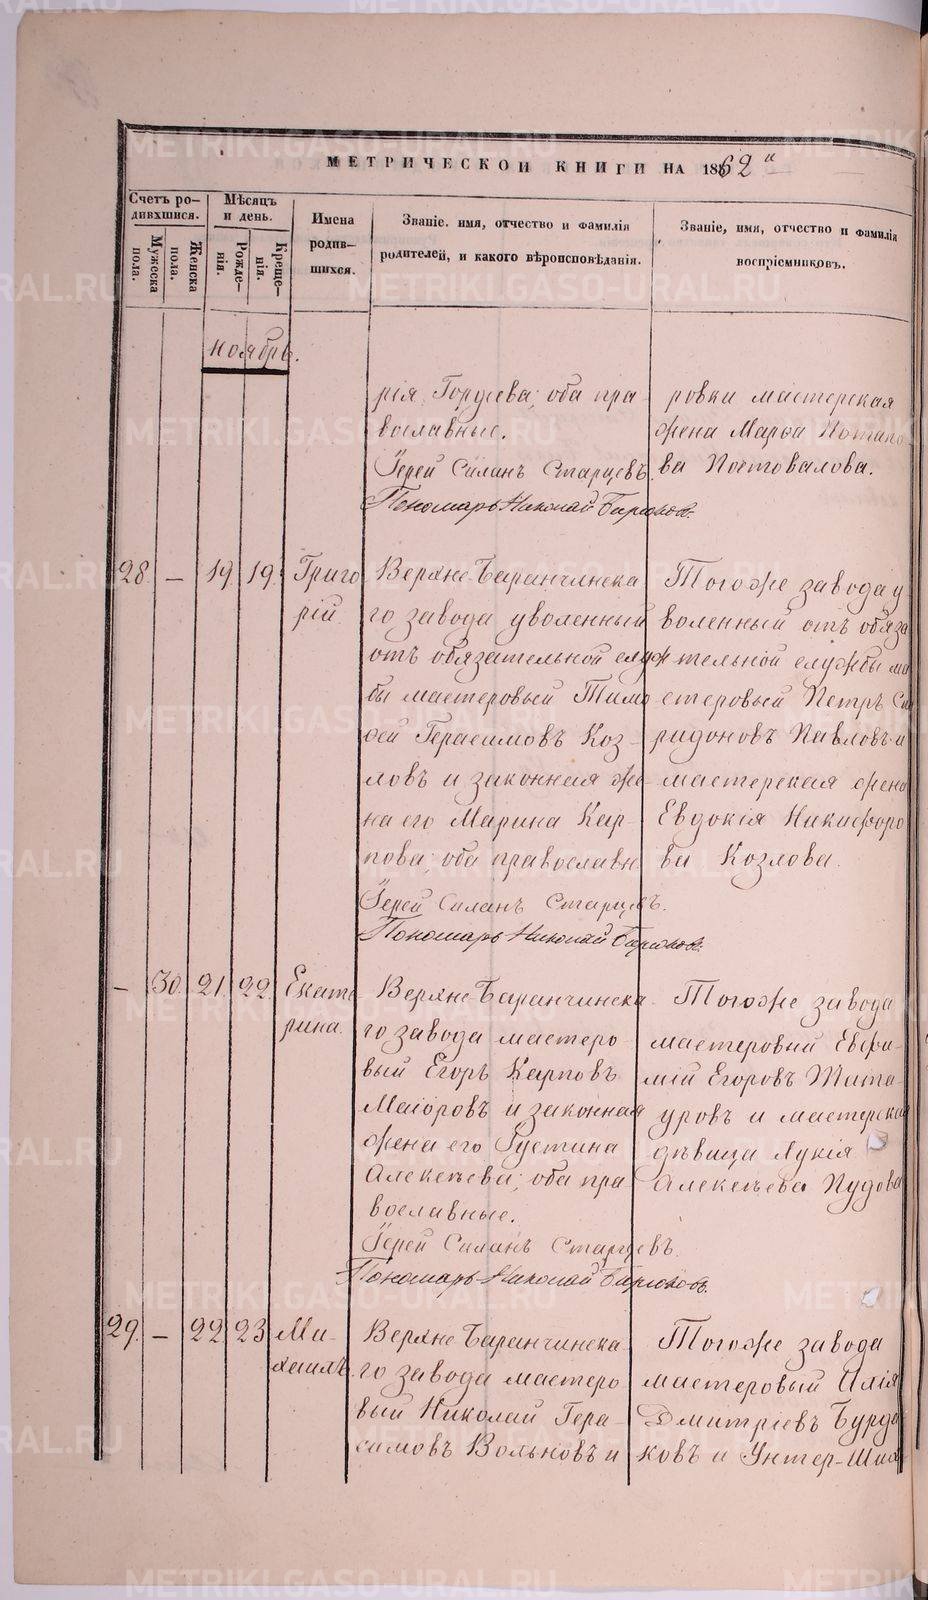 МЕТРИЧЕСКОЙ КНИГИ НА 1862й
Счетъ ро-
дившихся.
Мужеска
пола.
Женска
пола.
Мѣсяцъ
и день.
Рожде-
нія.
Креще-
нія.
Имена
родив-
шихся.
Званіе, имя, отчество и фамилія
родителей, и какого вѣроисповѣданія.
Званіе, имя, отчество и фамилія
воспріемниковъ.
Ноябрь.
рія ; оба пра
вославные.
Іерей Силанъ Старцевъ.
Пономарь Николай Бирюковъ.
ровки мастерская
жена Марѳа Потапо
ва Постовалова.
28. — 19 19. Григо
рій.
Верхне-Баранчинска
го завода уволенный
отъ обязательной служ
бы мастеровый Тимо
ѳей Герасимовъ Коз-
ловъ и законная же-
на его Марина Кар-
пова; оба православн
Іерей Силанъ Старцевъ.
Пономарь Николай Бирюковъ.
Тогоже завода у
воленный отъ обяза
тельной службы ма
стеровый Петръ Спи
ридоновъ Павловъ и
мастерская жена
Евдокія Никифоро
ва Козлова.
— 30. 21 22. Екате
рина.
Верхне-Баранчинска
го завода мастеро-
вый Егоръ Карповъ
Маіоровъ и законная
жена его Густина
Алексѣева; оба пра
вославные.
Іерей Силанъ Старцевъ.
Пономарь Николай Бирюковъ.
Тогоже завода
мастеровый Евѳи-
мій Егоровъ Шата-
уровъ и мастерская
дѣвица Лукія
Алексѣева Пудова
29. — 22 23 Ми-
хаилъ.
Верхне-Баранчинска
го завода мастеро
вый Николай Гера-
симовъ Вольновъ и
Тогоже завода
мастеровый Илія
Дмитріевъ Бурда
ковъ и Унтер-Ших
METRIKI.GASO-URAL.RU